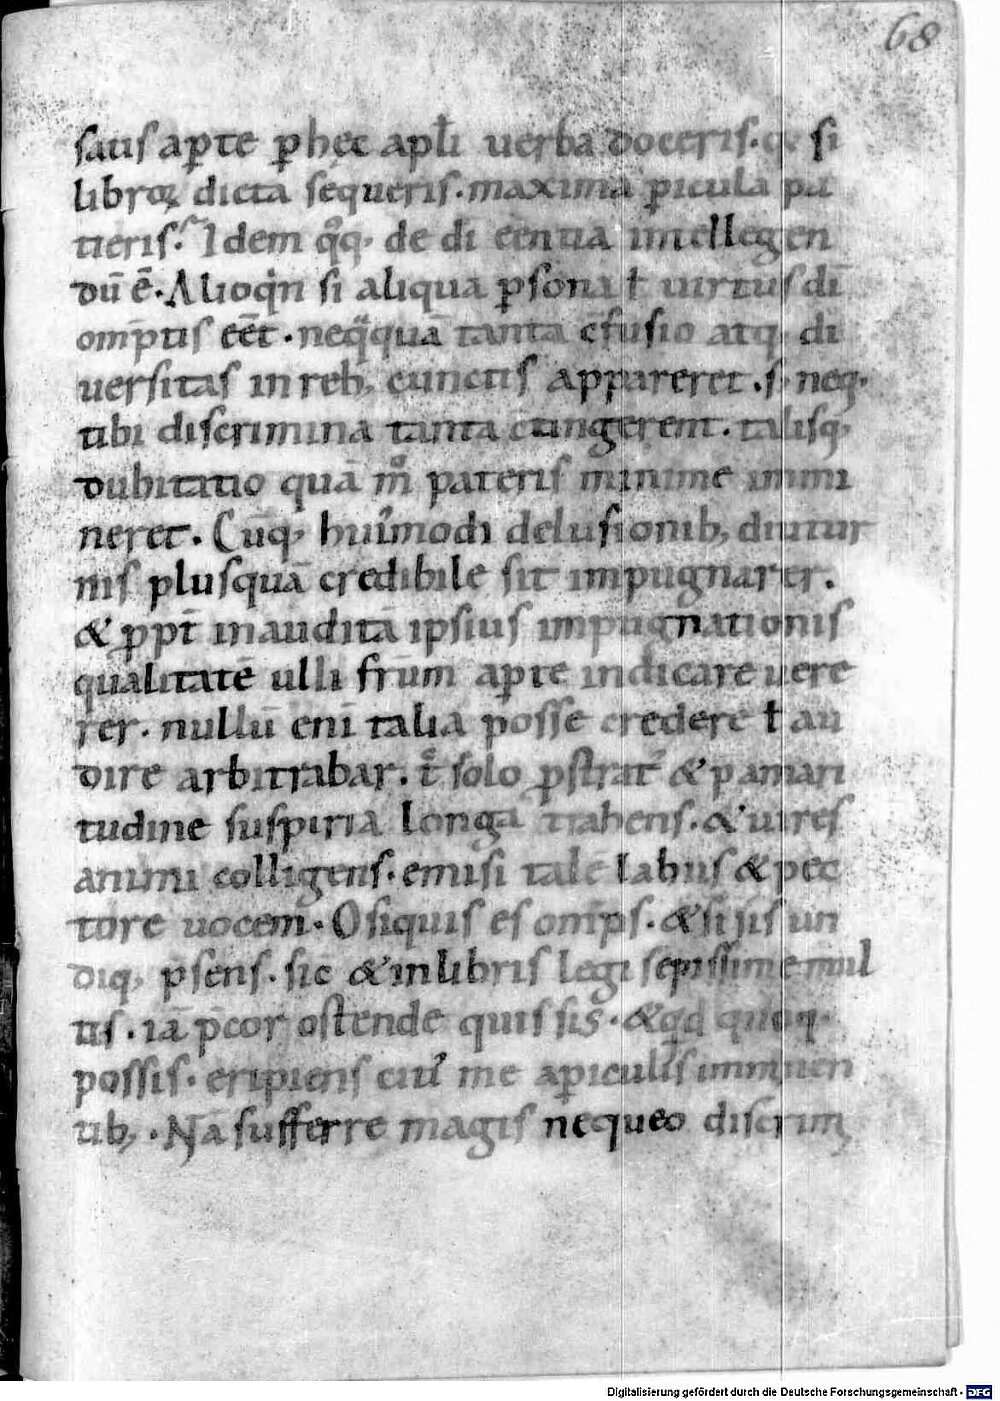 68
satis ap̱te p̱ hęc apłi uerba doceris. q̇ si
libroꝝ dicta sequeris. maxima p̱icula pa
tieris. Idem qͦq; de di eentia intellegen
dū ē. Alioqͥn si aliqua p̱sona ł uirtus di
omp̄tis eēt. neqͣquā tanta c̄fusio atq; di
uersitas in reb; cunctis appareret. s; neq;
tibi discrimina tanta c̄tingerent. talisq;
dubitatio quā m̊ pateris minime immi
neret. Cūq; huiꝰmodi delusionib; diutur
nis plusquā credibile sit impugnarer.
& p̱pt̄ inauditā ipsius impugnationis
qualitatē ulli fr̄um ap̱te indicare uere
rer. nullū eni talia posse credere ł au
dire arbitrabar. solo p̱stratꝰ & p amari
tudine suspiria longa trahens. & uires
animi colligens. emisi talē labiis & pec
tore uocem. O siquis es omp̄s. & si sis un
diq; p̄sens. sic̄ & in libris legi sepissime mul
tis. iā p̄cor ostende quis sis. & qͥd quoq;
possis. eripiens citiꝰ me a p̱iculis imminen
tib;. Nā sufferre magis nequeo discrim̄
Digitalisierung gefördert durch die Deutsche Forschungsgemeinschaft - DFG